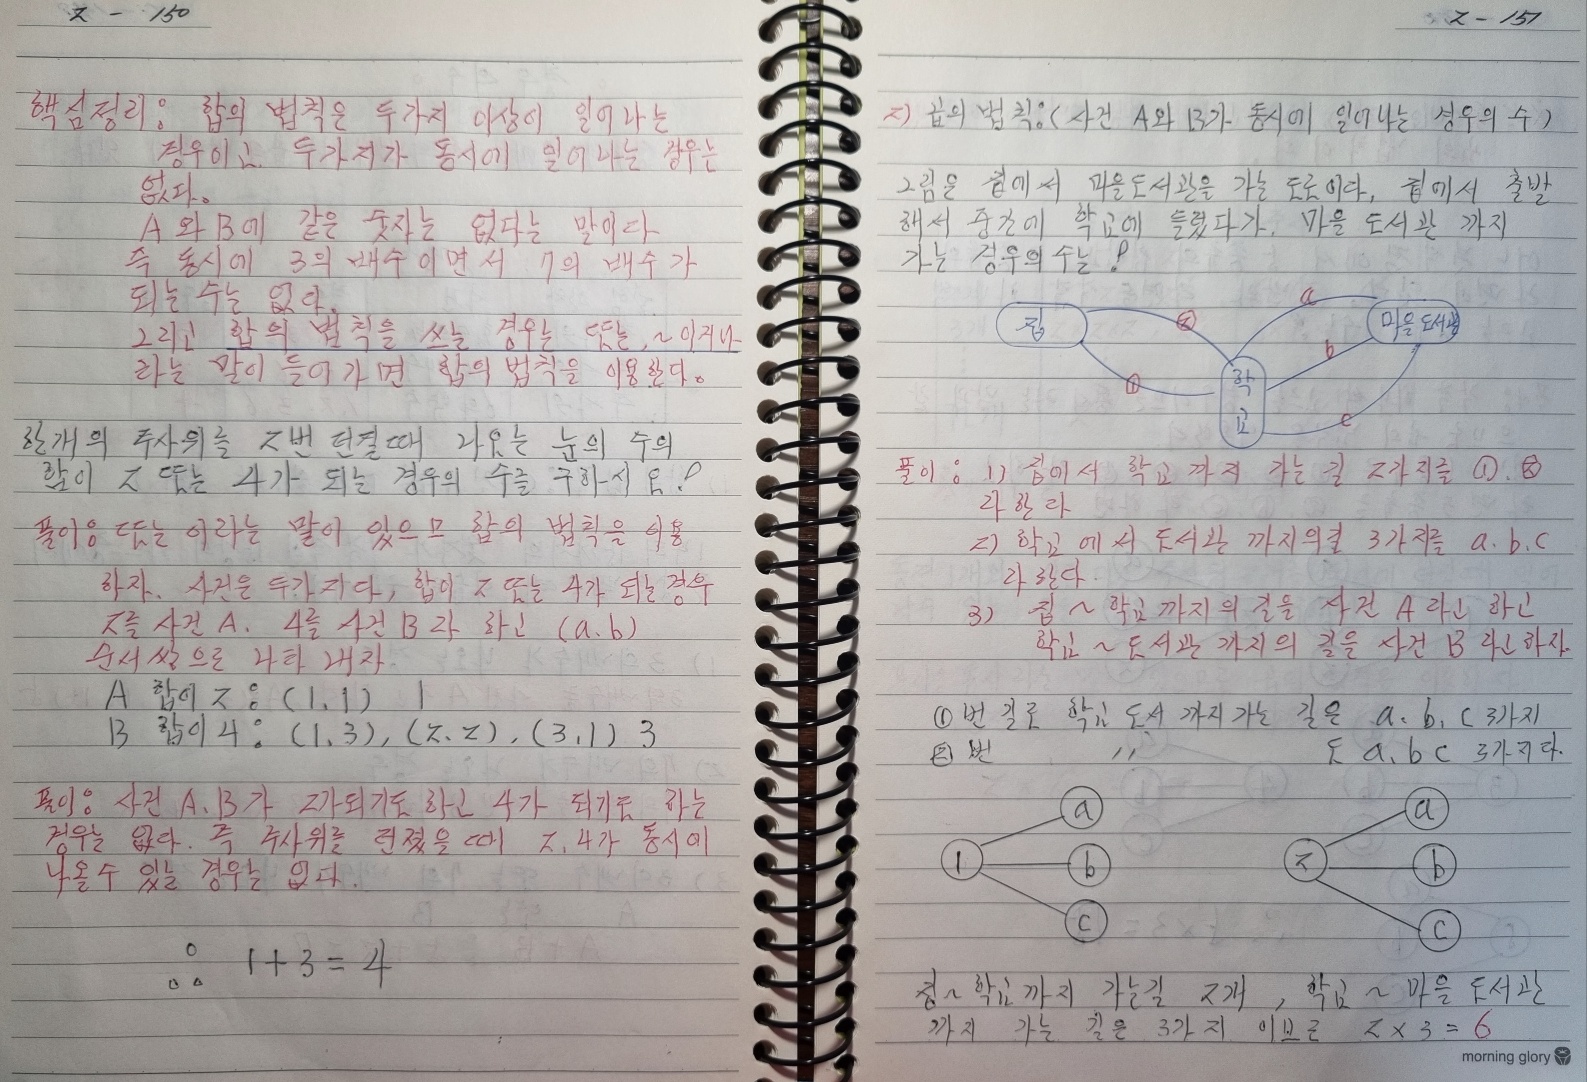 2 - 150
핵심정리: 합의 법칙은 두가지 이상이 일어나는
경우이고 두가지가 동시에 일어나는 경우는
없다.
A와 B에 같은 숫자는 없다는 말이다
즉 동시에 3의 배수이면서 7의 배수가
되는 수는 없다.
그리고 합의 법칙을 쓰는 경우는 또는, ~이거나
라는 말이 들어가면 합의 법칙을 이용한다.
한개의 주사위를 2번 던졌때 나오는 눈의 수의
합이 2 또는 4가 되는 경우의 수를 구하시오?
풀이: 또는 이라는 말이 있으므 합의 법칙을 이용
하자. 사건은 두가지다, 합이 2 또는 4가 되는 경우
2를 사건 A. 4를 사건 B라 하고 (a.b)
순서쌍으로 나타내자
A 합이 2: (1,1) 1
B 합이 4: (1,3), (2.2), (3,1) 3
풀이: 사건 A.B가 2가되기도 하고 4가 되기도 하는
경우는 없다. 즉 주사위를 던졌을 때 2.4가 동시에
나올수 있는 경우는 없다.
∴ 1+3=4
2 - 151
2) 곱의 법칙:(사건 A와 B가 동시에 일어나는 경우의 수)
그림은 집에서 마을도서관을 가는 도로이다, 집에서 출발
해서 중간에 학교에 들렸다가. 마을 도서관 까지
가는 경우의 수는?
a
집 ② 마을도서관
b
① 학
교 c
풀이: 1) 집에서 학교 까지 가는 길 2가지를 ①.②
라 한다
2) 학교에서 도서관 까지의길 3가지를 a.b.c
라 한다.
3) 집~학교까지의 길을 사건 A라고 하고
학교~도서관 까지의 길을 사건 B라고하자.
①번 길로 학교 도서 까지가는 길은 a.b.c 3가지
②번 〃 도 a.b c 3가지다.
a a
1 b 2 b
c c
집~학교까지 가는길 2개, 학교~마을 도서관
까지 가는 길은 3가지 이브로 2×3=6
morning glory